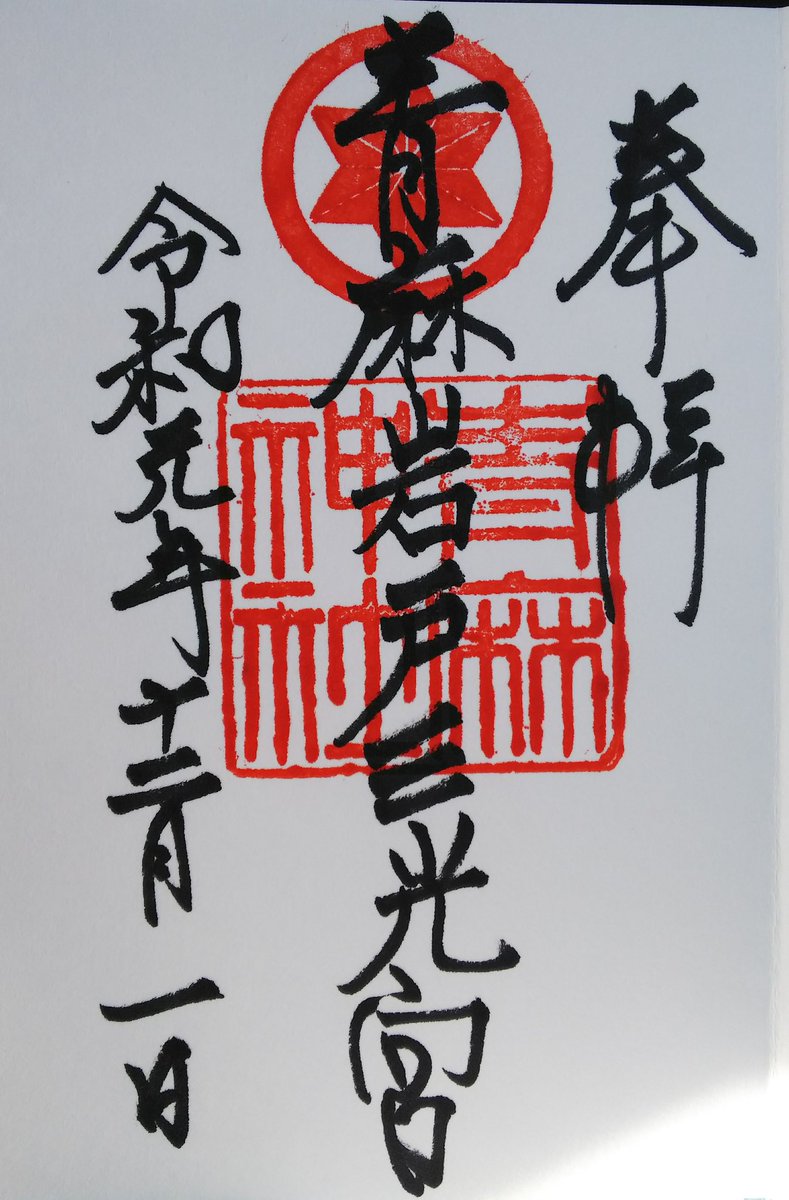 奉拝
青麻岩戸三光宮
青麻神社
令和元年十二月一日